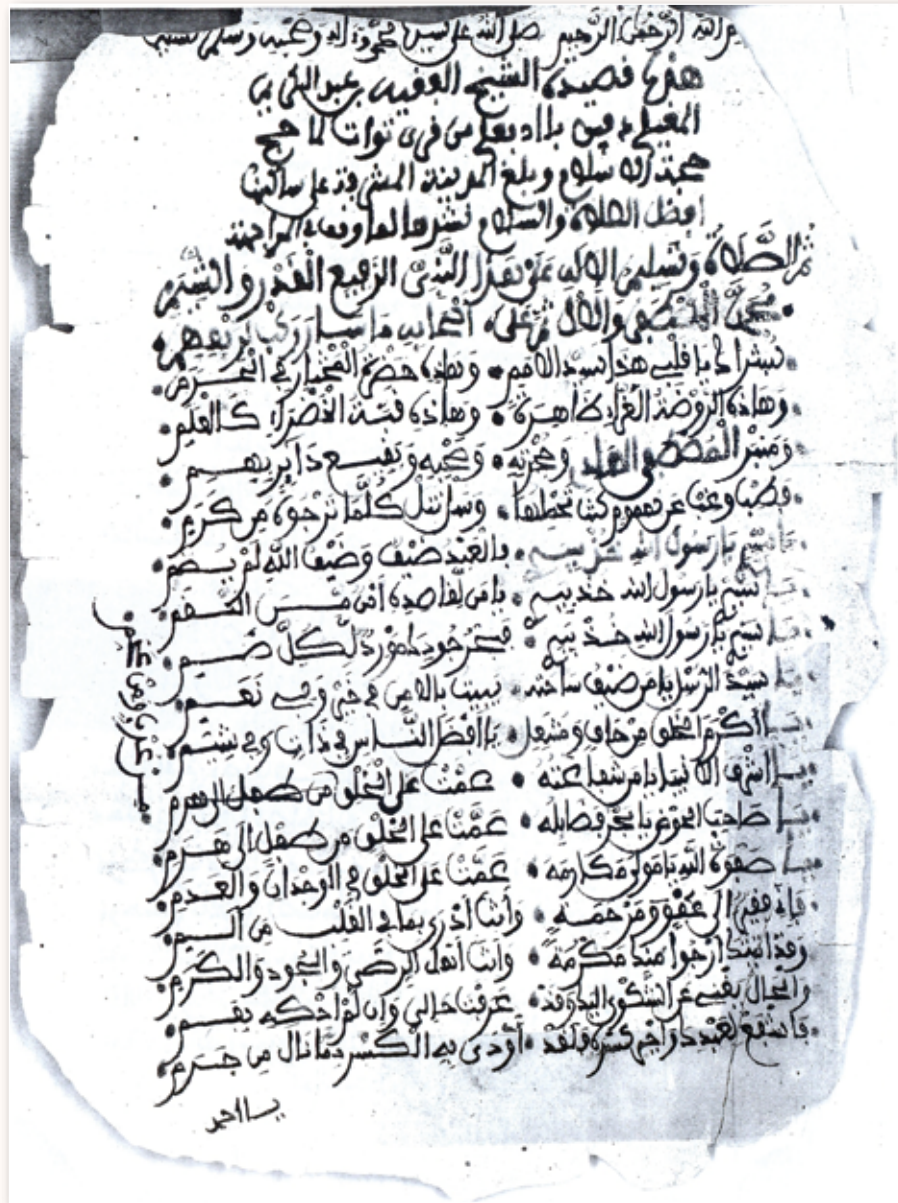 الله الرحمن الرحيم صلى الله على سيدنا محمد وءاله وصحبه وسلم تسليما
هذه قصيدة الشيخ الفقيه بن عبد الكريم
المغيلي دفين بلاد من قرى توات لما حج
حجة الاسلام وبلغ المدينة المشرفة على ساكنها
افضل الصلاة والسلام
ثم الصلاة وتسليم الاله على هذا النبي الرفيع القدر والشيم
محمد المصطفى والال ثم على أصحابه ما سار ركب
بشراك يا قلب هذا سيد الامم وهاذه حضرة المختار في الحرم
وهاذه الروضة الغراء ظاهرة وهاذه قبة الخضراء كالعلم
ومنبر المصطفى الهادي وحجرته وصحبه وبقيع داير بهم
فطب وغب عن هموم كنت تحملها وسل تنل كلما ترجوه من كرم
يا سيدي يا رسول الله فالعبد ضيف وضيف الله لم يضم
يا سيدي يا رسول الله خذ بيدي يا من لقاصده
يا سيدي يا رسول الله خذ بيدي جودك مورد لكل
يا سيد الرسل يا من ضيف ساحته يبيت بالامن في خير وفي نعم
يا اكرم الخلق من حاف ومنتعل يا افضل الناس في ذات وفي شيم
يا أشرف الانبياء يا من شفاعته عمت على الخلق من طفل الى هرم
يا صاحب الحوض يا بحر فضايله عمت على الخلق من طفل الى هرم
يا صفوة الله يا مولى مكارمه عمت على الخلق في الوجدان والعدم
فاني فقير الى عفو ومرحمة وأنت أدرى بما في القلب من ألم
وقد أرجوا منك مكرمة وانت أهل الرضى والجود والكرم
والحال يغني عن الشكوى اليك وقد عرفت حالي وان لم احكه بفم
فاشفع لعبدك واجبر كسره فلقد أودى به الكسر لما نال من جرم
يا احمد